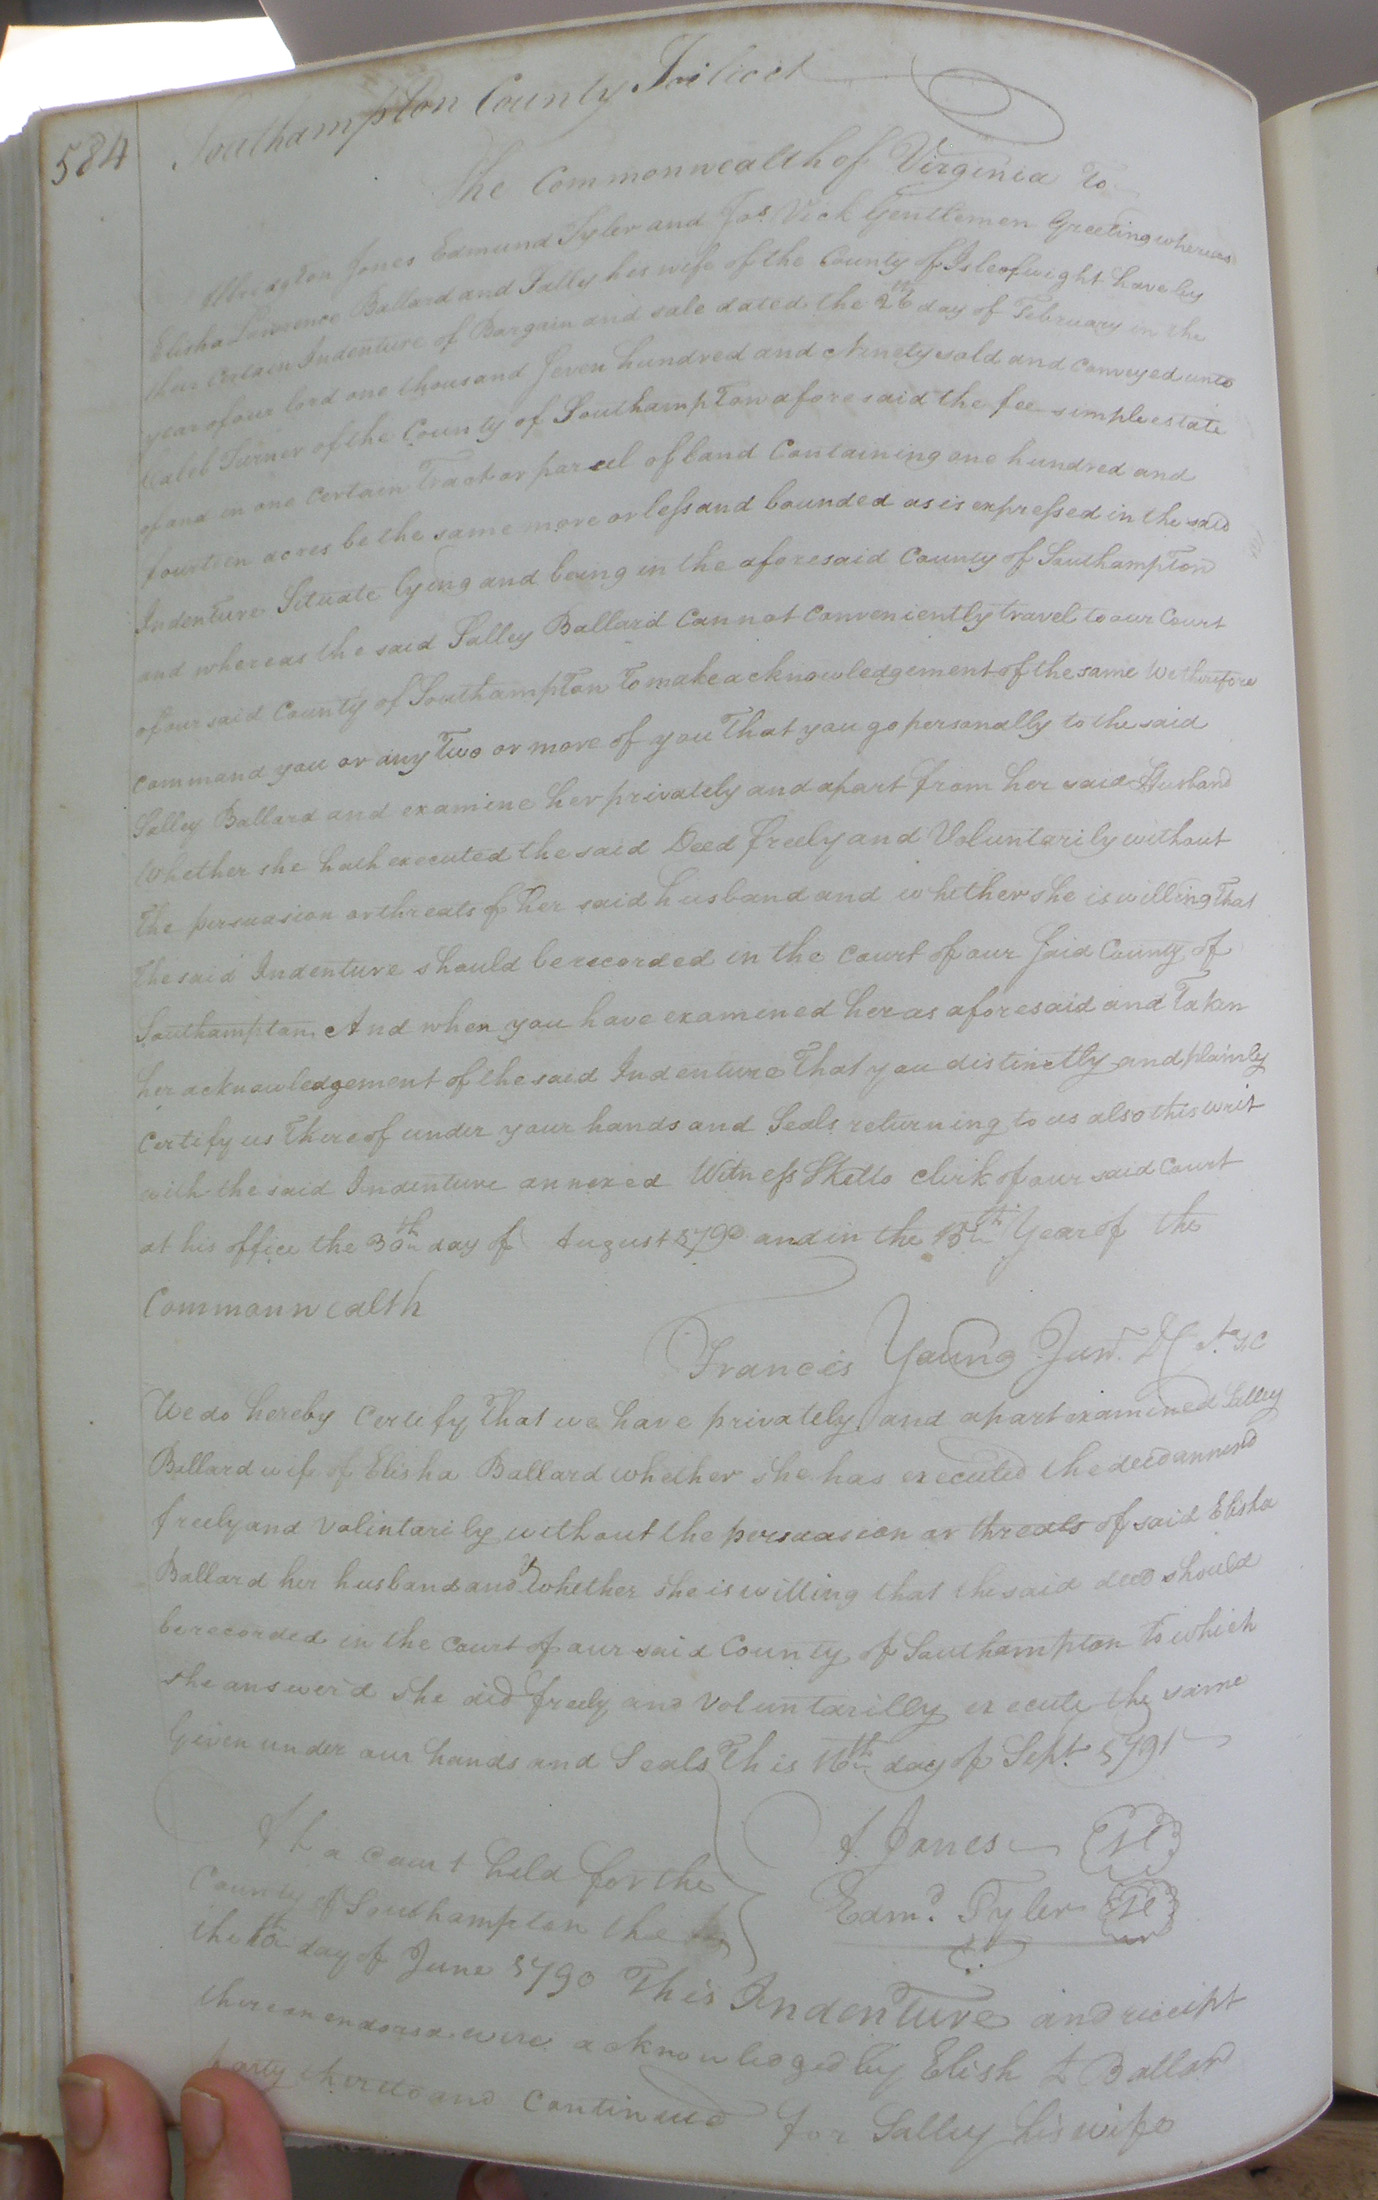 584
Southampton County Scilicet
The Commonwealth of Virginia To
Albridgton Jones Edmund Tyler and Jas Vick Gentlemen Greeting whereas
Elisha Lawrence Ballard and Sally his wife of the County of Isleofwight have by
their certain Indenture of Bargain and sale dated the 26th day of February in the
year of our lord one thousand Seven hundred and Ninety sold and conveyed unto
Caleb Turner of the County of Southampton aforesaid the fee simple estate
of and in one certain Tract or parcel of land Containing one hundred and
fourteen acres be the same more or less and bounded as is expressed in the said
Indenture Situate lying and being in the aforesaid County of Southampton
and whereas the said Salley Ballard Cannot Conveniently travel to our Court
of our said County of Southampton to make acknowledgement of the same We therefore
command you or any Two or more of you That you go personally to the said
Salley Ballard and examine her privately and apart from her said Husband
Whether she hath executed the said Deed freely and Voluntarily without
The persuasion or threats of her said husband and whether she is willing That
The said Indenture should be recorded in the Court of our Said County of
Southampton, And when you have examined her as aforesaid and Taken
her acknowledgement of the said Indenture That you distinctly and plainly
Certify us Thereof under your hands and Seals returning to us also this writ
with the said Indenture annexed Witness SKello clerk of our said Court
at his office the 30th day of August 1790 and in the 15th Year of the
Commonwealth
Francis Young Junr. D
We do hereby Certify That we have privately and apart examined Salley
Ballard wife of Elisha Ballard whether she has executed the deed annexd
freely and Volintarily without the persuasion or threats of said Elisha
Ballard her husband and whether she is willing that the said deed should
be recorded in the Court of our said County of Southampton To which
she answerd she did freely and Voluntarilly execute the same
Given under our hands and Seals This 16th day of Sept. 1791
A. Jones
Edmd. Tyler
At a court held for the
County of Southampton the
the 10th day of June 1790 This Indenture and receipt
thereon endorsd were acknowledged by Elish L Ballard
party thereto and Continued for Salley his wife